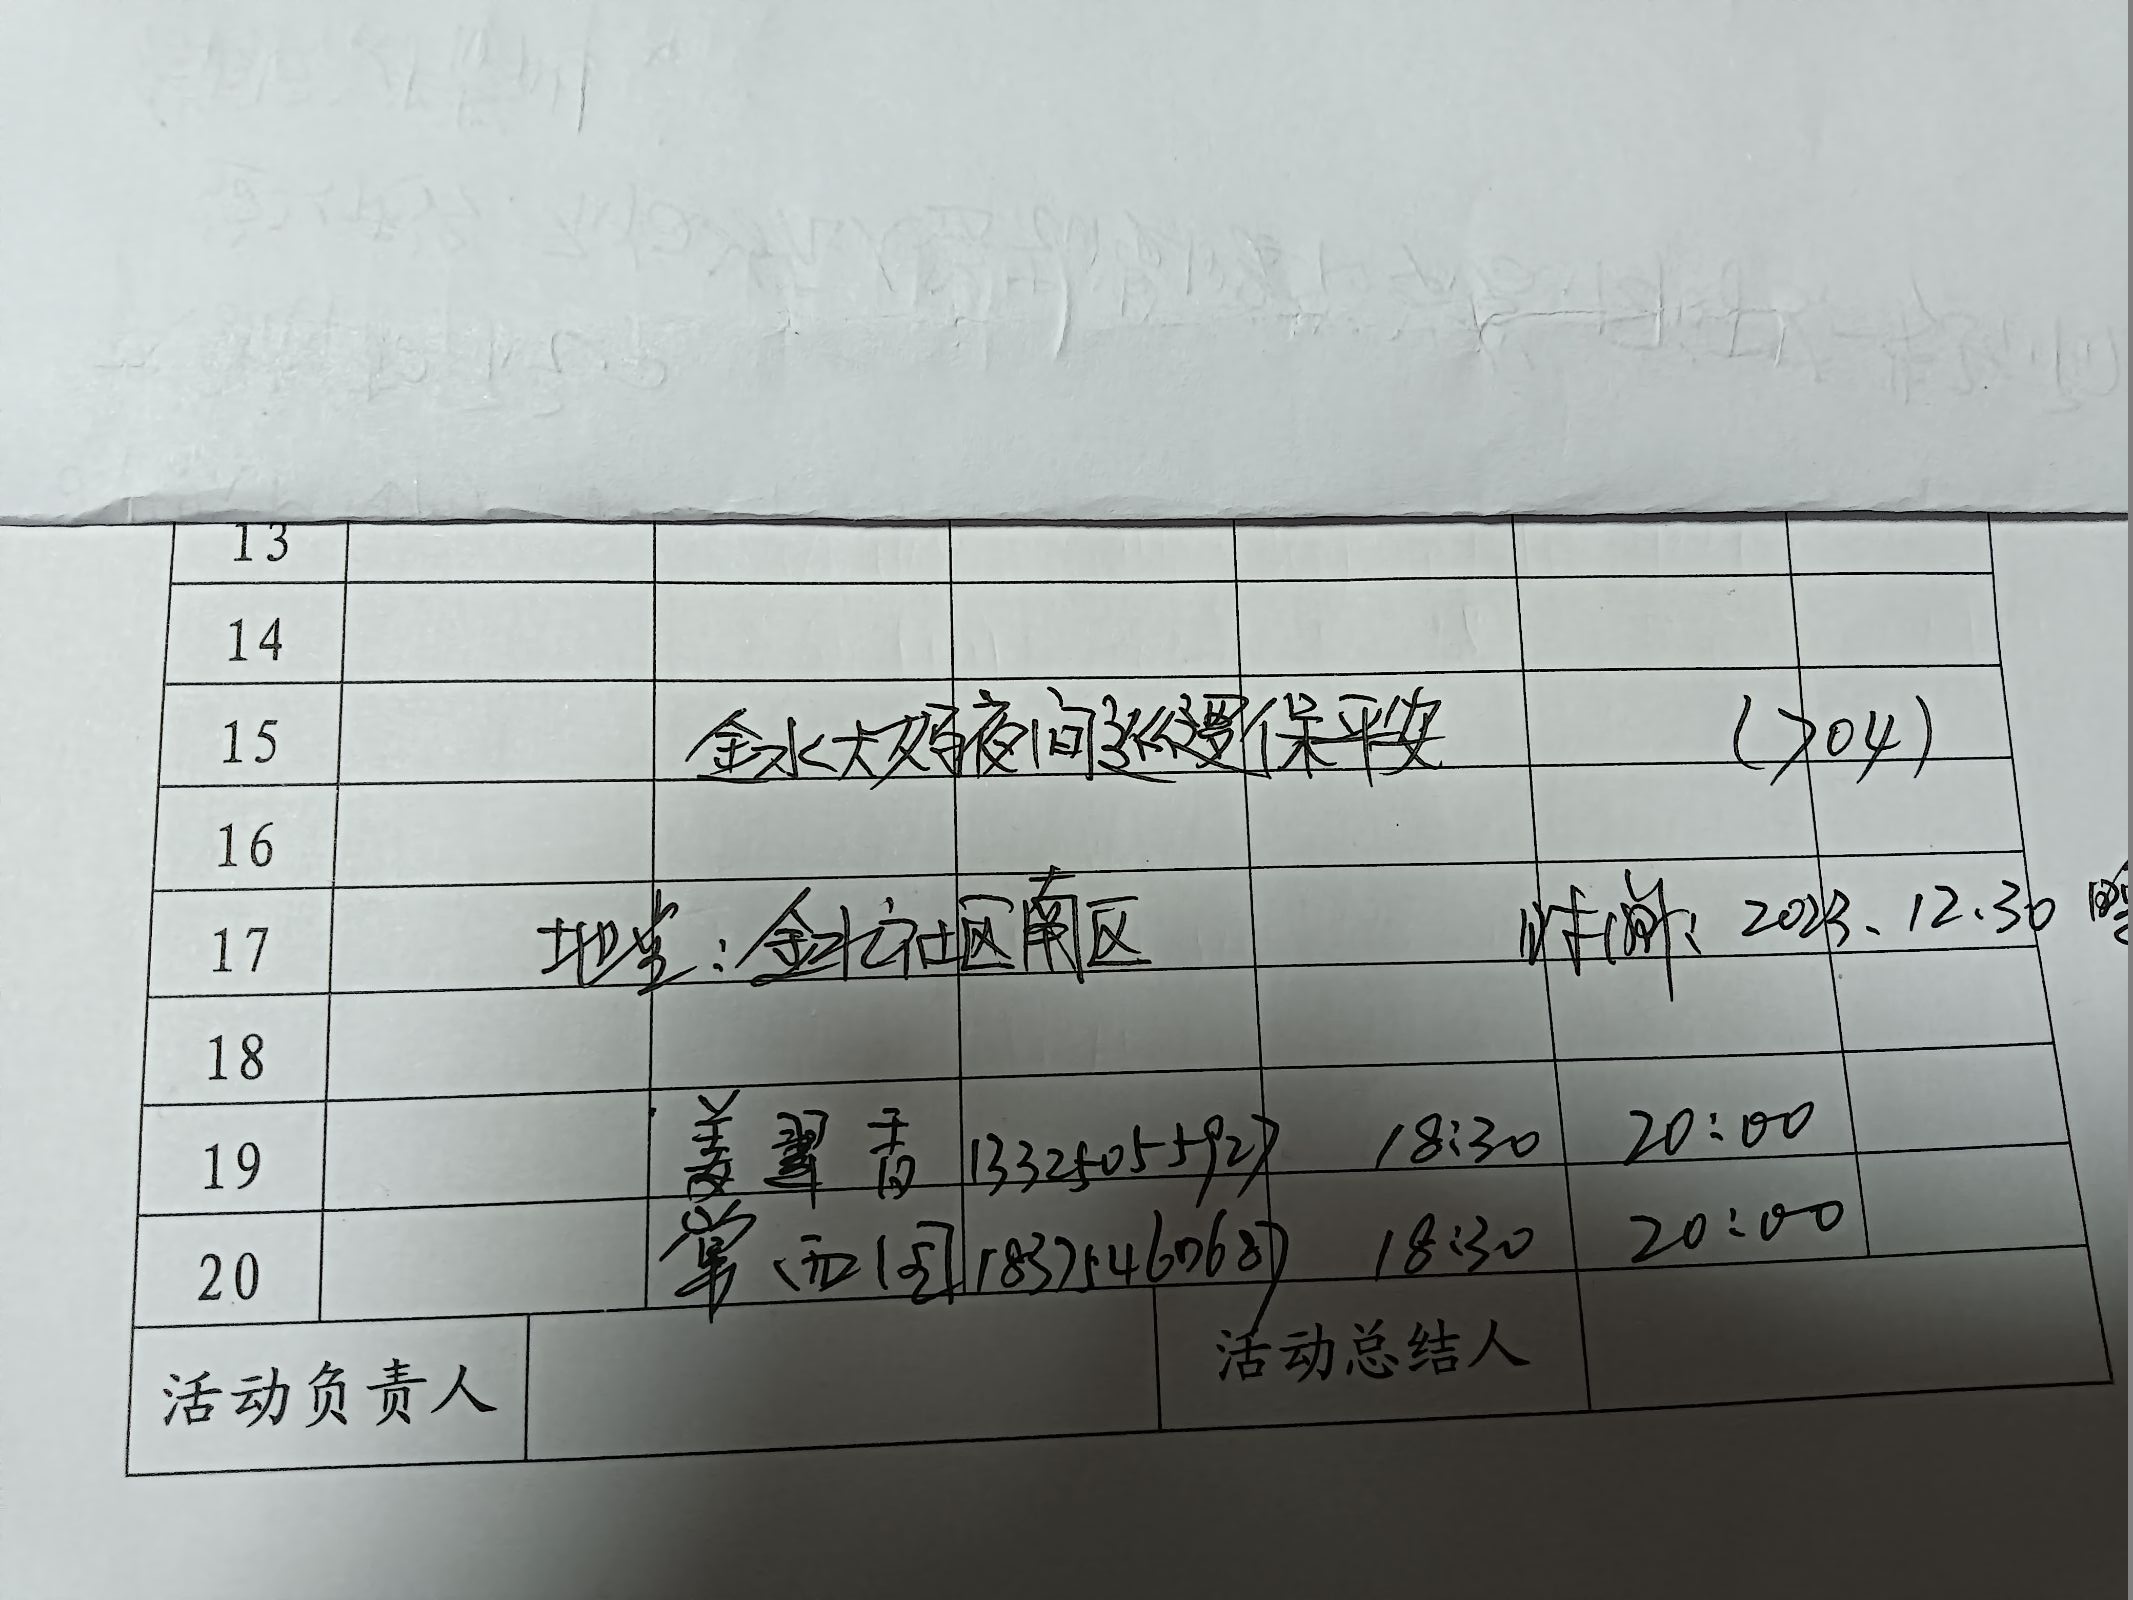 13
14
15 金水大妈夜间巡逻保平安 (704)
16
17 地点:金北社区南区 时间: 2023.12.30
18
19 姜翠香 13325055927 18:30 20:00
20 常 18:30 20:00
活动负责人 活动总结人